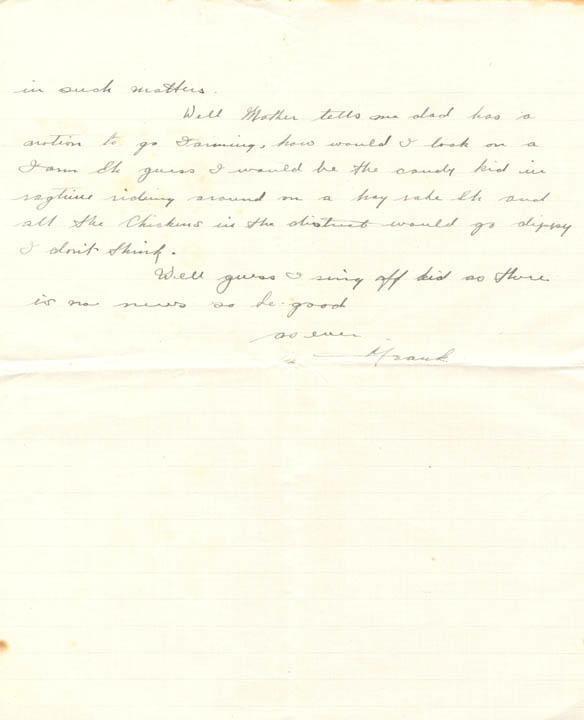 in such matters.
Well Mother tells me dad has a
notion to go Farming, how would I look on a
Farm Eh guess I would be the candy kid in
ragtime riding around on a hay rake Eh and
all the Chickens in the district would go dippy
I don't think.
Well guess I ring off kid as there
is no news so be good
as ever
Frank